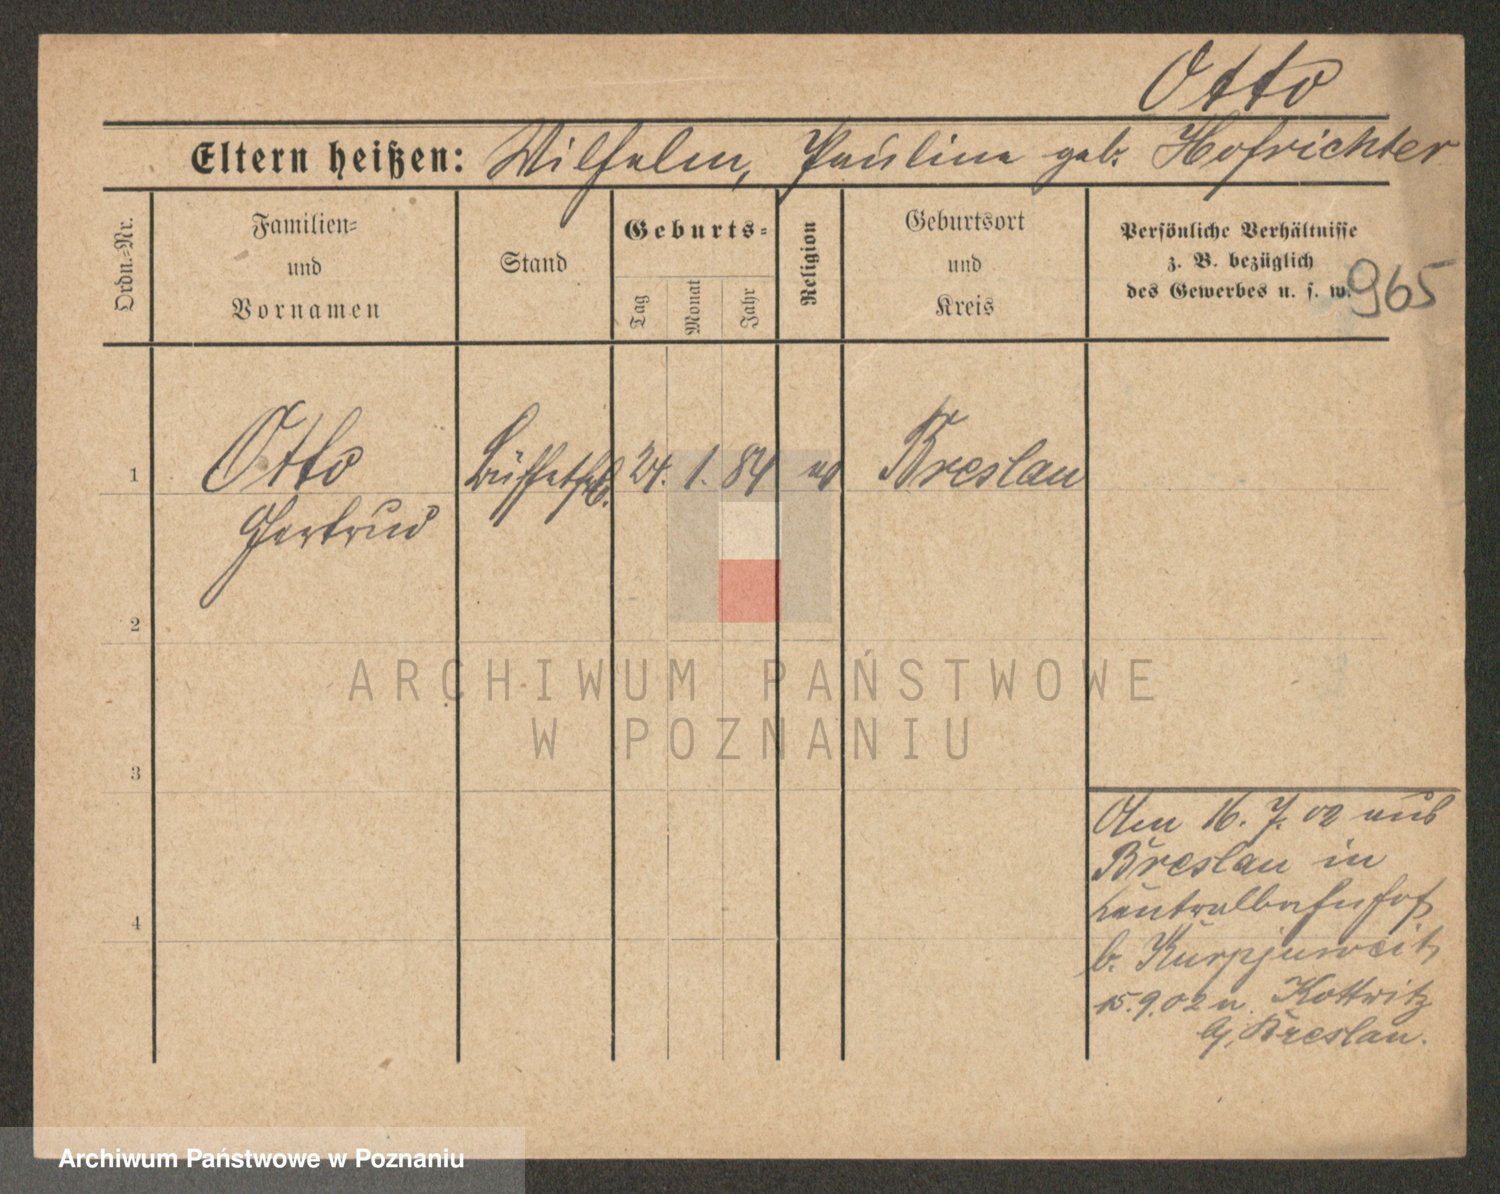 Otto
Eltern heißen: Wilhelm, Pauline geb. Hofrichter
Ordn.-Nr.
Familien-
und
Vornamen
Stand
Geburts-
Tag
Monat
Jahr
Religion
Geburtsort
und
Kreis
Persönliche Verhältnisse
z. B. bezüglich
des Gewerbes u. s. w.
965
1 Otto 24. 1. 84 Breslau
Gertrud
2
3
4
16. 7. 02 aus
Breslau in
Centralbahnhof
b. Kurpjuweit,
15.9.02 n. Kottwitz
Breslau.
ARCHIWUM PAŃSTWOWE
W POZNANIU
Archiwum Państwowe w Poznaniu